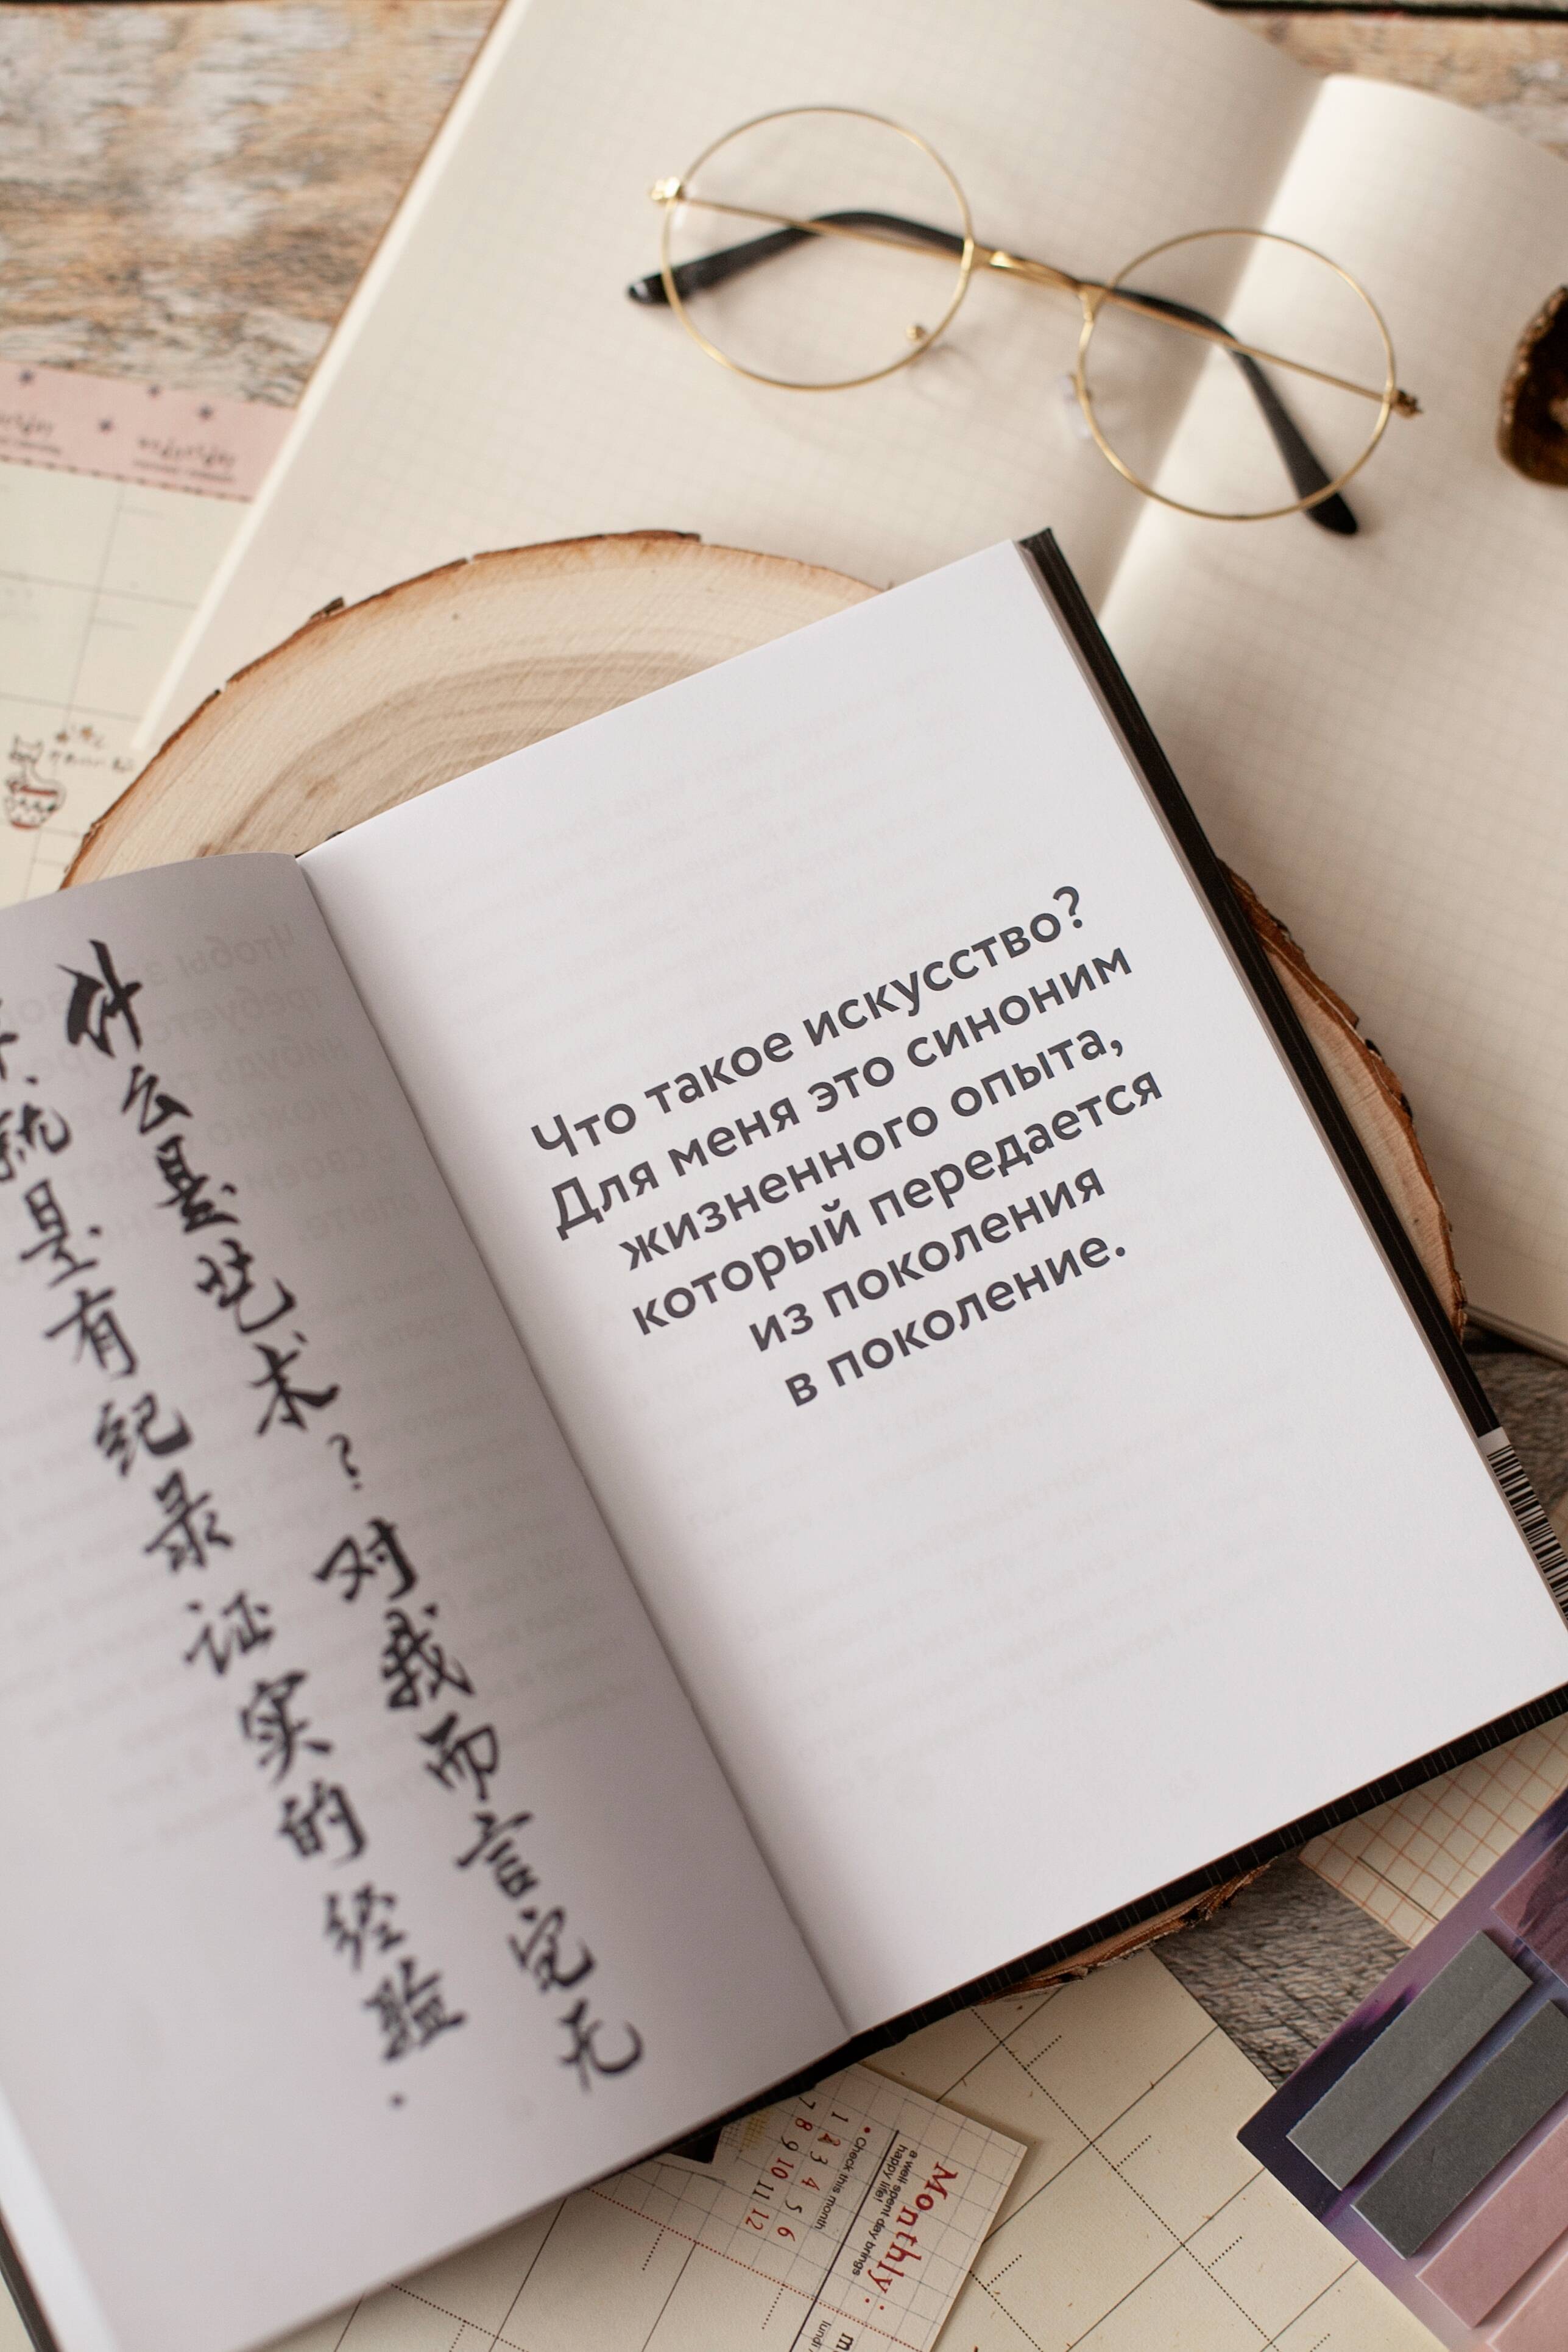 什么是艺术？对我而言它无
就是有纪录证实的经验.
Что такое искусство?
Для меня это синоним
жизненного опыта,
который передается
из поколения
в поколение.
Monthly.
a well spent day brings
happy life!
Check this month
1 2 3 4 5 6
7 8 9 10 11 12